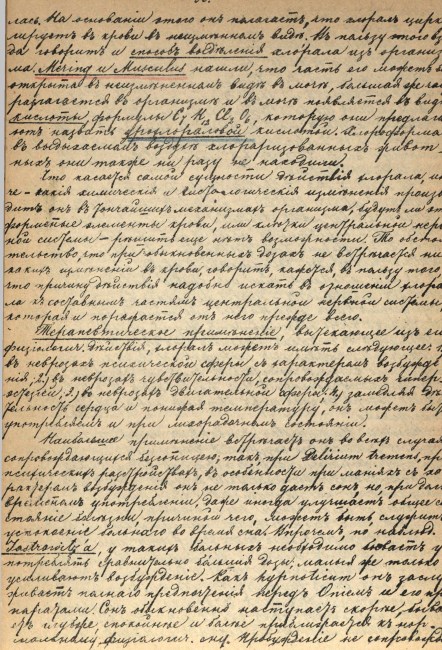 лась. На основанiи этого онъ полагаетъ, что хлоралъ цирк
лируетъ въ крови въ неизмѣненномъ видѣ. Въ пользу этого вы
да говоритъ и способъ выдѣленiя хлорала изъ организ
ма. Mering и Musculus нашли, что часть его можетъ б
открыта въ неизмѣненномъ видѣ въ мочѣ, большая же ча
разлагается въ организмѣ и въ мочѣ появляется въ вид
кислоты формулы C7 H12 Cl2 O6, которую они предлаг
ютъ назвать урохлоралевой кислотой. Хлороформа
въ выдыхаемомъ воздухѣ хлорализованныхъ живот
ныхъ они также ни разу не находили.
Что касается самой сущности дѣйствiя хлорала, и
че - какiя химическiя и гистологическiя измѣненiя произ
дитъ онъ въ тончайшихъ механизмахъ организма, будутъ ли э
форменные элементы крови, или клѣтки центральной нер
ной системы - рѣшить еще нѣтъ возможности. То обст
тельство, что при обыкновенныхъ дозахъ не встрѣчается ни
какихъ измѣненiй въ крови, говоритъ, кажется, въ пользу того
что причину дѣйствiя надобно искать въ отношенiи хлора
ла къ составнымъ частямъ центральной нервной системы,
которая и поражается отъ него прежде всего.
Терапевтическое примѣненiе, вытекающее изъ ег
физiологич. дѣйствiя, хлоралъ можетъ имѣть слѣдующее: 1
въ неврозахъ психической сферы, съ характеромъ возбужд
нiя, 2) въ неврозахъ чувствительности, сопровождаемыхъ гипер
естезiей, 3) въ неврозахъ двигательной сферы. 4) замедляя дѣ
тельность сердца и понижая температуру, онъ можетъ бы
употребляемъ и при лихорадочномъ состоянiи.
Наибольшее примѣненiе встрѣчаетъ онъ во всѣхъ случая
сопровождающихся безсонницею, такъ при Delirium tremens, при
психическихъ разстройствахъ, въ особенности при манiяхъ съ ха
рактеромъ возбужденiя онъ не только даетъ сонъ, но, при дли
временномъ употребленiи, даже иногда улучшаетъ общее с
стоянiе больнаго, причиной чего, можетъ быть, служит
успокоенiе больнаго во время сна. Впрочемъ, по наблюд.
Jastrowitz'a, у такихъ больныхъ необходимо бываетъ у
потреблять сравнительно большiя дозы, малыя же только
усиливаютъ возбужденiе. Какъ hypnoticum онъ заслу
живаетъ полнаго предпочтенiя передъ опiемъ и его пр
паратами. Сонъ обыкновенно наступаетъ скорѣе, быва
етъ глубже, спокойнѣе и болѣе приближается къ нор
мальному, физiологич. сну. Пробужденiе не сопровожд